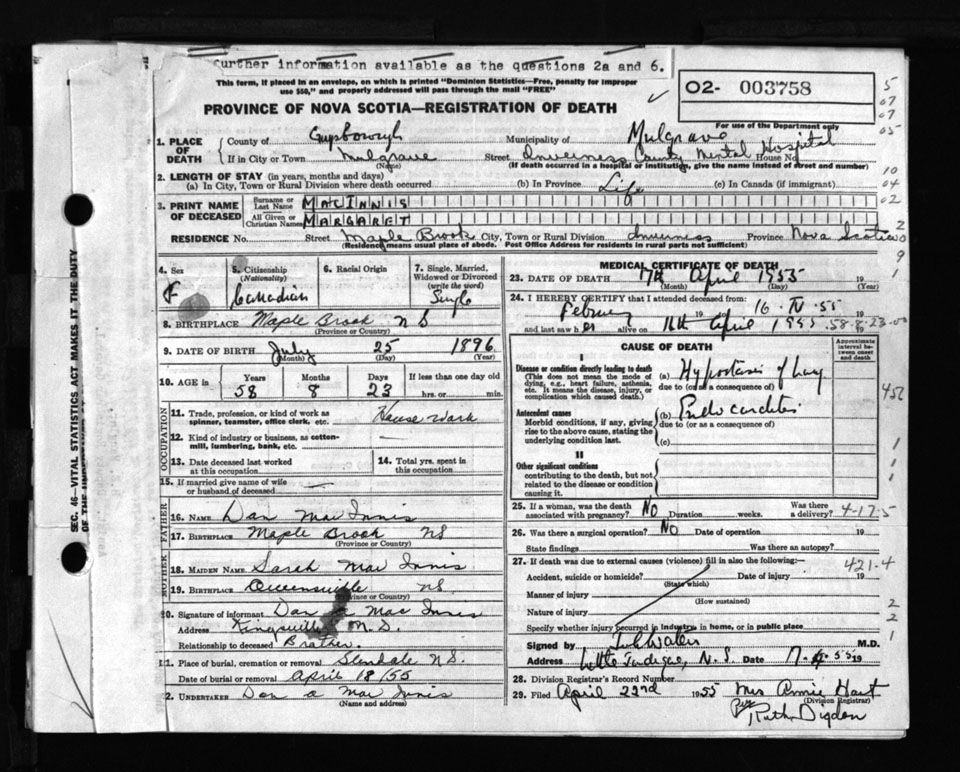 Further information available as the questions 2a and 6.
This form, if placed in an envelope, on which is printed "Dominion Statistics—Free, penalty for improper
use $50," and properly addressed will pass through the mail "FREE"
PROVINCE OF NOVA SCOTIA—REGISTRATION OF DEATH
02- 003758
For use of the Department only
5
07
07
05
10
04
02
1. PLACE OF DEATH
County of Guysborough Municipality of Mulgrave
If in City or Town Mulgrave Street Inverness County Mental Hospital House No.
(Name) (If death occurred in a hospital or institution, give the name instead of street and number)
2. LENGTH OF STAY (in years, months and days)
(a) In City, Town or Rural Division where death occurred (b) In Province Life (c) In Canada (if immigrant)
3. PRINT NAME OF DECEASED
Surname or Last Name MACINNIS
All Given or Christian Names MARGARET
RESIDENCE No. Street Maple Brook City, Town or Rural Division Inverness Province Nova Scotia
(Residence means usual place of abode. Post Office Address for residents in rural parts not sufficient)
2
0
9
4. Sex F
5. Citizenship (Nationality) Canadian
6. Racial Origin
7. Single, Married, Widowed or Divorced (write the word) Single
8. BIRTHPLACE Maple Brook N S
(Province or Country)
9. DATE OF BIRTH July 25 1896
(Month) (Day) (Year)
10. AGE in Years Months Days If less than one day old
58 8 23 hrs. or min.
OCCUPATION
11. Trade, profession, or kind of work as spinner, teamster, office clerk, etc. House work
12. Kind of industry or business, as cotton-mill, lumbering, bank, etc. —
13. Date deceased last worked at this occupation
14. Total yrs. spent in this occupation
15. If married give name of wife or husband of deceased —
FATHER
16. NAME Dan Mac Innis
17. BIRTHPLACE Maple Brook NS
(Province or Country)
MOTHER
18. MAIDEN NAME Sarah Mac Innis
19. BIRTHPLACE Queensville NS.
(Province or Country)
20. Signature of informant Dan a Mac Innis
Address Kingsville N.S.
Relationship to deceased Brather
21. Place of burial, cremation or removal Glendale N.S.
Date of burial or removal April 18/55
2. UNDERTAKER Dan a Mac Innis
(Name and address)
SEC. 46—VITAL STATISTICS ACT MAKES IT THE DUTY
MEDICAL CERTIFICATE OF DEATH
23. DATE OF DEATH 17th April 1955
(Month) (Day) (Year)
24. I HEREBY CERTIFY that I attended deceased from:
February 19 to 16 · IV · 55 19
and last saw h er alive on 16th April 1955
58-8-23-00
CAUSE OF DEATH
Approximate interval between onset and death
I
Disease or condition directly leading to death
(This does not mean the mode of dying, e.g., heart failure, asthenia, etc. It means the disease, injury, or complication which caused death.)
(a) Hypostasis of Lung
due to (or as a consequence of)
Antecedent causes
Morbid conditions, if any, giving rise to the above cause, stating the underlying condition last.
(b) Endocarditis
due to (or as a consequence of)
(c)
II
Other significant conditions
contributing to the death, but not related to the disease or condition causing it.
1
1
1
25. If a woman, was the death associated with pregnancy? No Duration weeks. Was there a delivery?
4-17-5
26. Was there a surgical operation? No Date of operation 19
State findings Was there an autopsy?
27. If death was due to external causes (violence) fill in also the following:—
421-4
Accident, suicide or homicide? Date of injury 19
(State which)
Manner of injury
(How sustained)
Nature of injury
Specify whether injury occurred in industry, in home, or in public place
2
2
1
Signed by M.D.
Address Little Judique, N.S. Date 19
28. Division Registrar's Record Number
29. Filed April 22nd 1955 Mrs Annie Hart
(Division Registrar)
Per Ruth Digdon